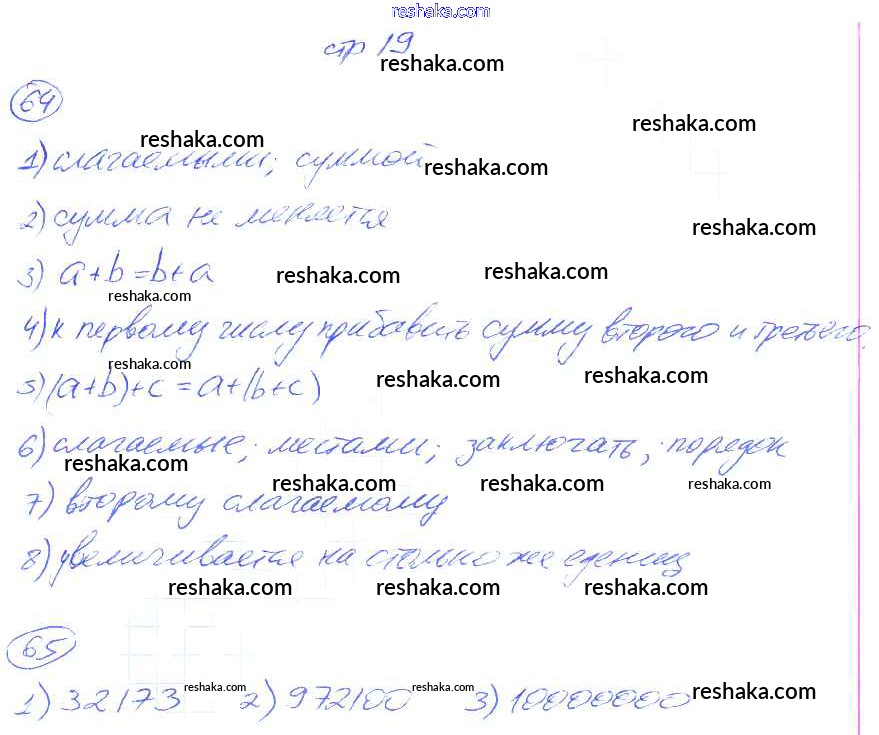 reshaka.com
стр 19
reshaka.com
64
reshaka.com
reshaka.com
1) слагаемыми; суммой
reshaka.com
2) сумма не меняется
reshaka.com
3) a+b=b+a
reshaka.com
reshaka.com
reshaka.com
4) к первому числу прибавить сумму второго и третьего.
reshaka.com
5) (a+b)+c=a+(b+c)
reshaka.com
reshaka.com
6) слагаемые; местами; заключать; порядок
reshaka.com
reshaka.com
reshaka.com
reshaka.com
7) второму слагаемому
8) увеличивается на столько же едениц
reshaka.com
reshaka.com
reshaka.com
65
1) 32173 reshaka.com 2) 972100 reshaka.com 3) 10000000 reshaka.com